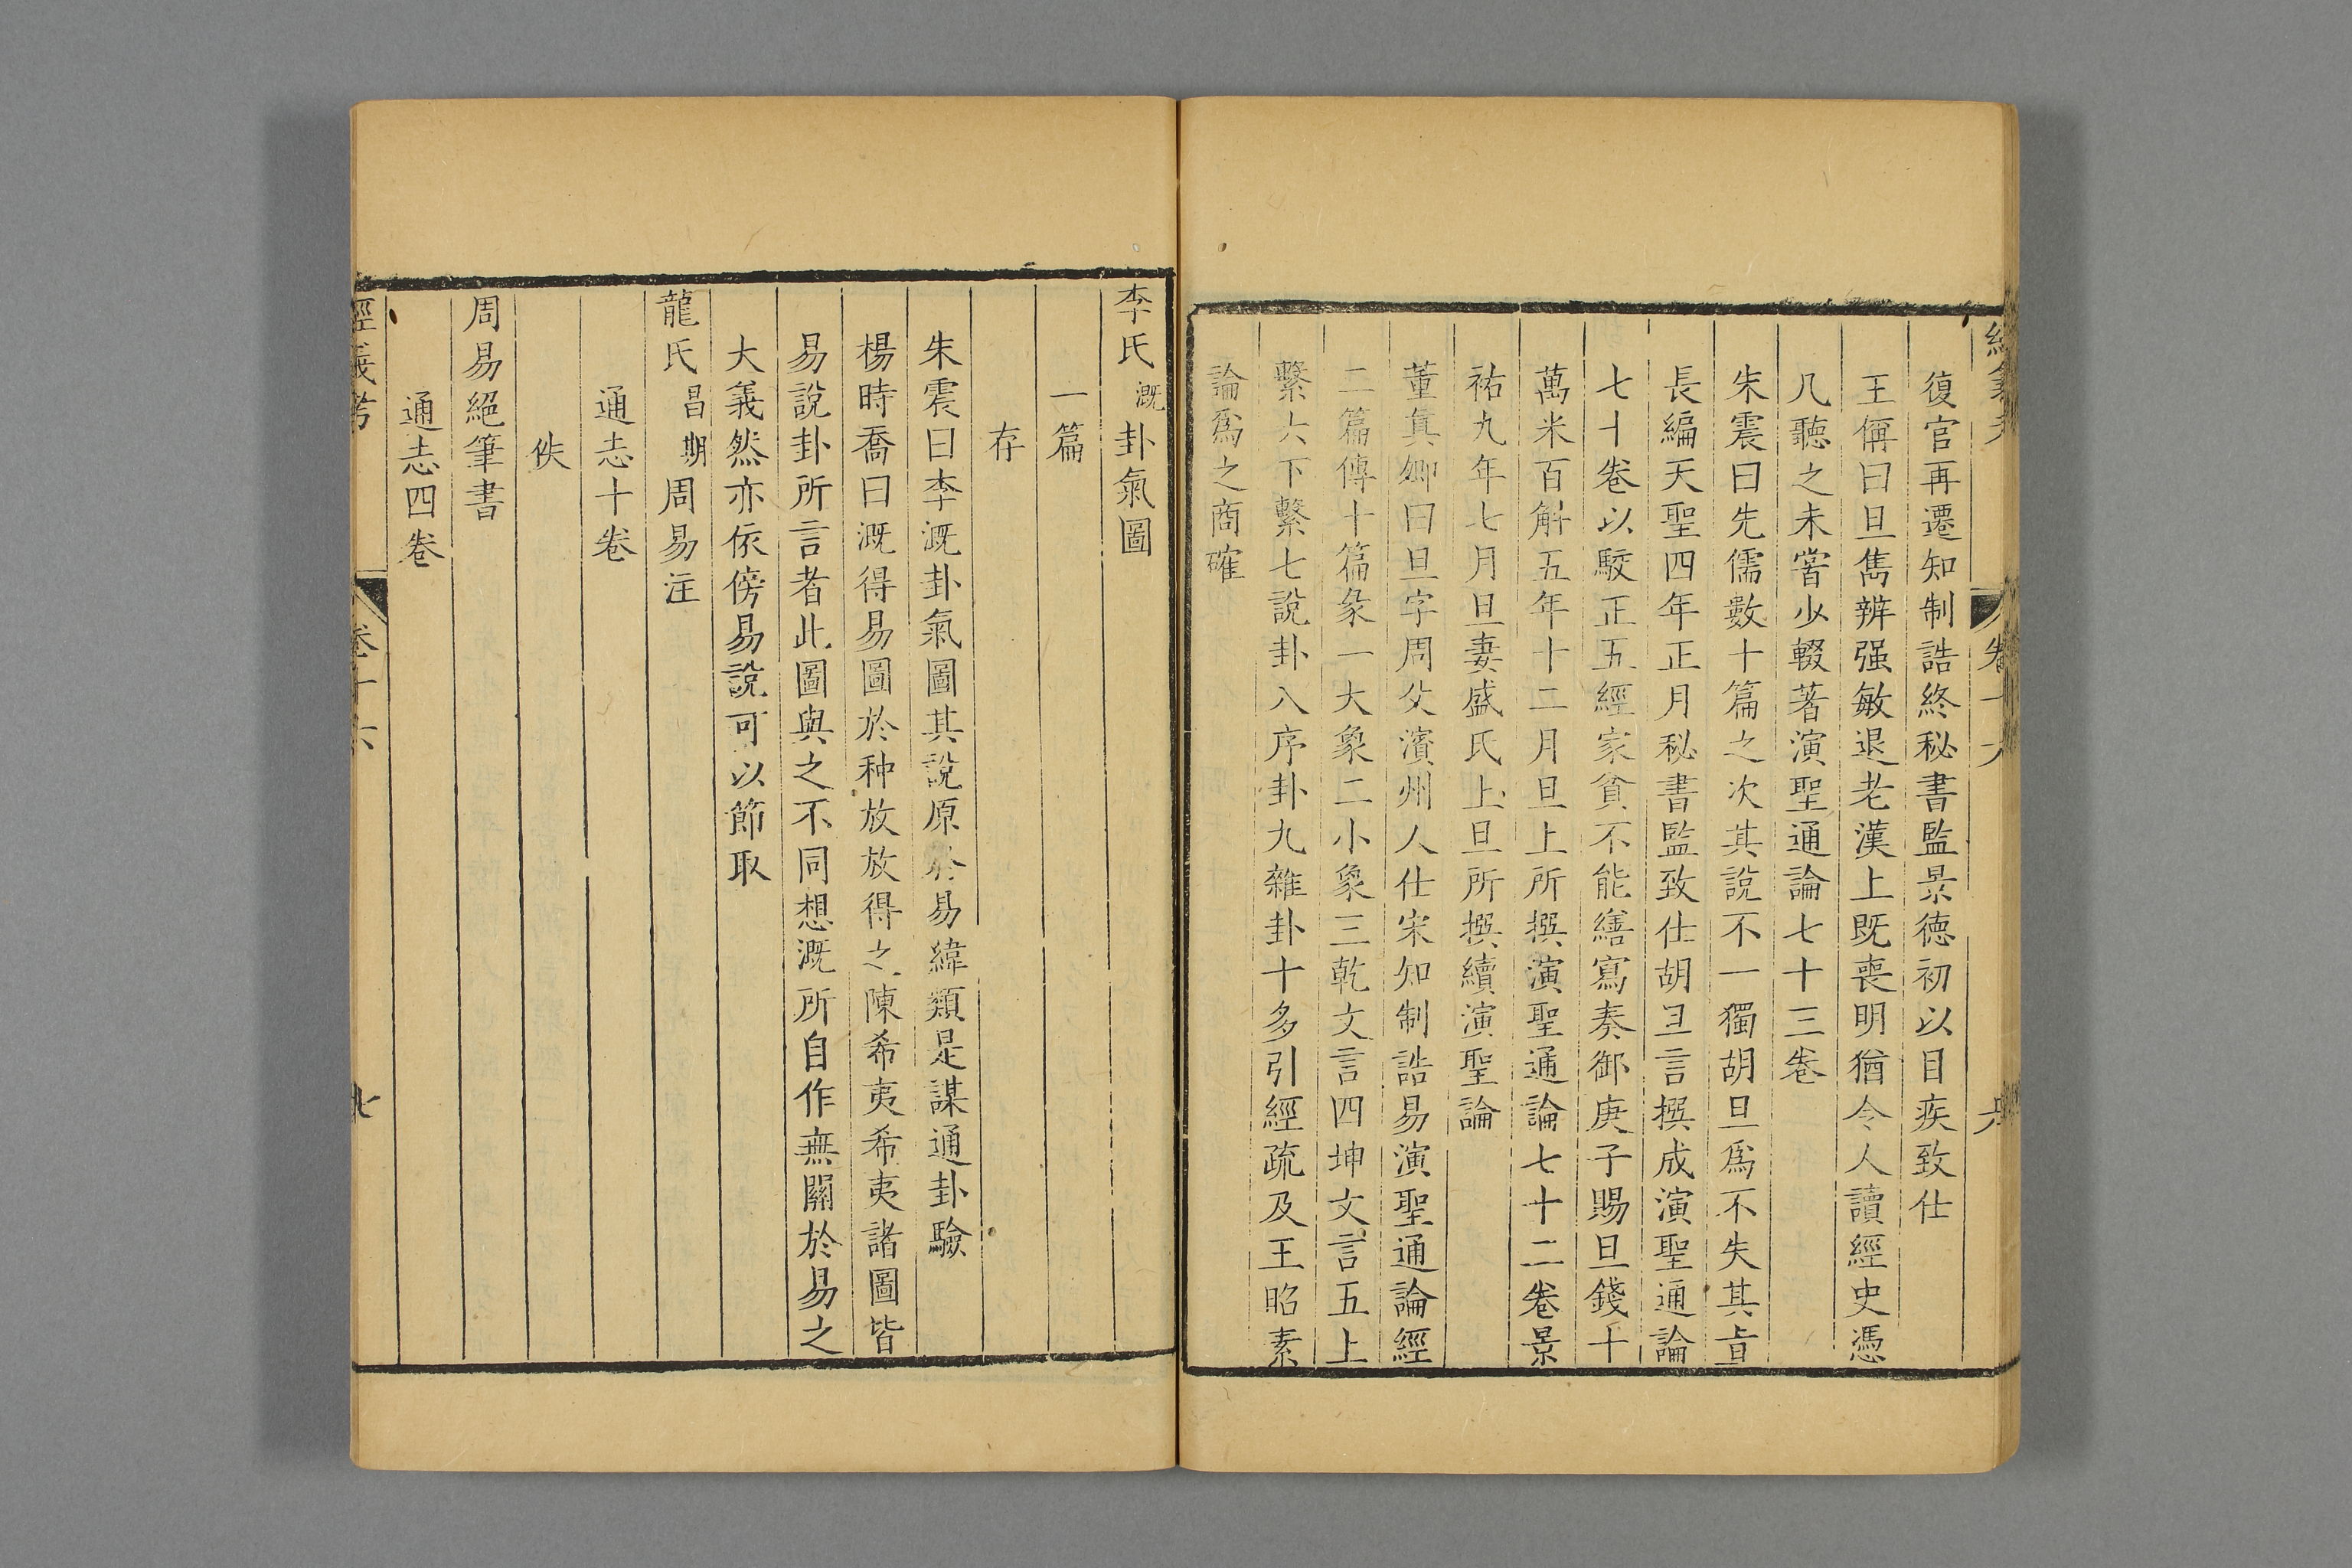 經義考 卷十六 六
復官再遷知制誥終秘書監景德初以目疾致仕
王偁曰旦雋辨强敏退老漢上既喪明猶令人讀經史憑
几聽之未嘗少輟著演聖通論七十三卷
朱震曰先儒數十篇之次其說不一獨胡旦爲不失其㫖
長編天聖四年正月秘書監致仕胡旦言撰成演聖通論
七十卷以駮正五經家貧不能繕寫奏御庚子賜旦錢十
萬米百斛五年十二月旦上所撰演聖通論七十二卷景
祐九年七月旦妻盛氏上旦所撰續演聖論
董真卿曰旦字周父濱州人仕宋知制誥易演聖通論經
二篇傳十篇彖一大象二小象三乾文言四坤文言五上
繫六下繫七說卦八序卦九雜卦十多引經疏及王昭素
論爲之商確
李氏漑卦氣圖
一篇
存
朱震曰李漑卦氣圖其說原於易緯類是謀通卦驗
楊時喬曰漑得易圖於种放放得之陳希夷希夷諸圖皆
易說卦所言者此圖與之不同想漑所自作無關於易之
大義然亦依傍易說可以節取
龍氏昌期周易注
通志十卷
佚
周易絕筆書
通志四卷
經義考 卷十六 七